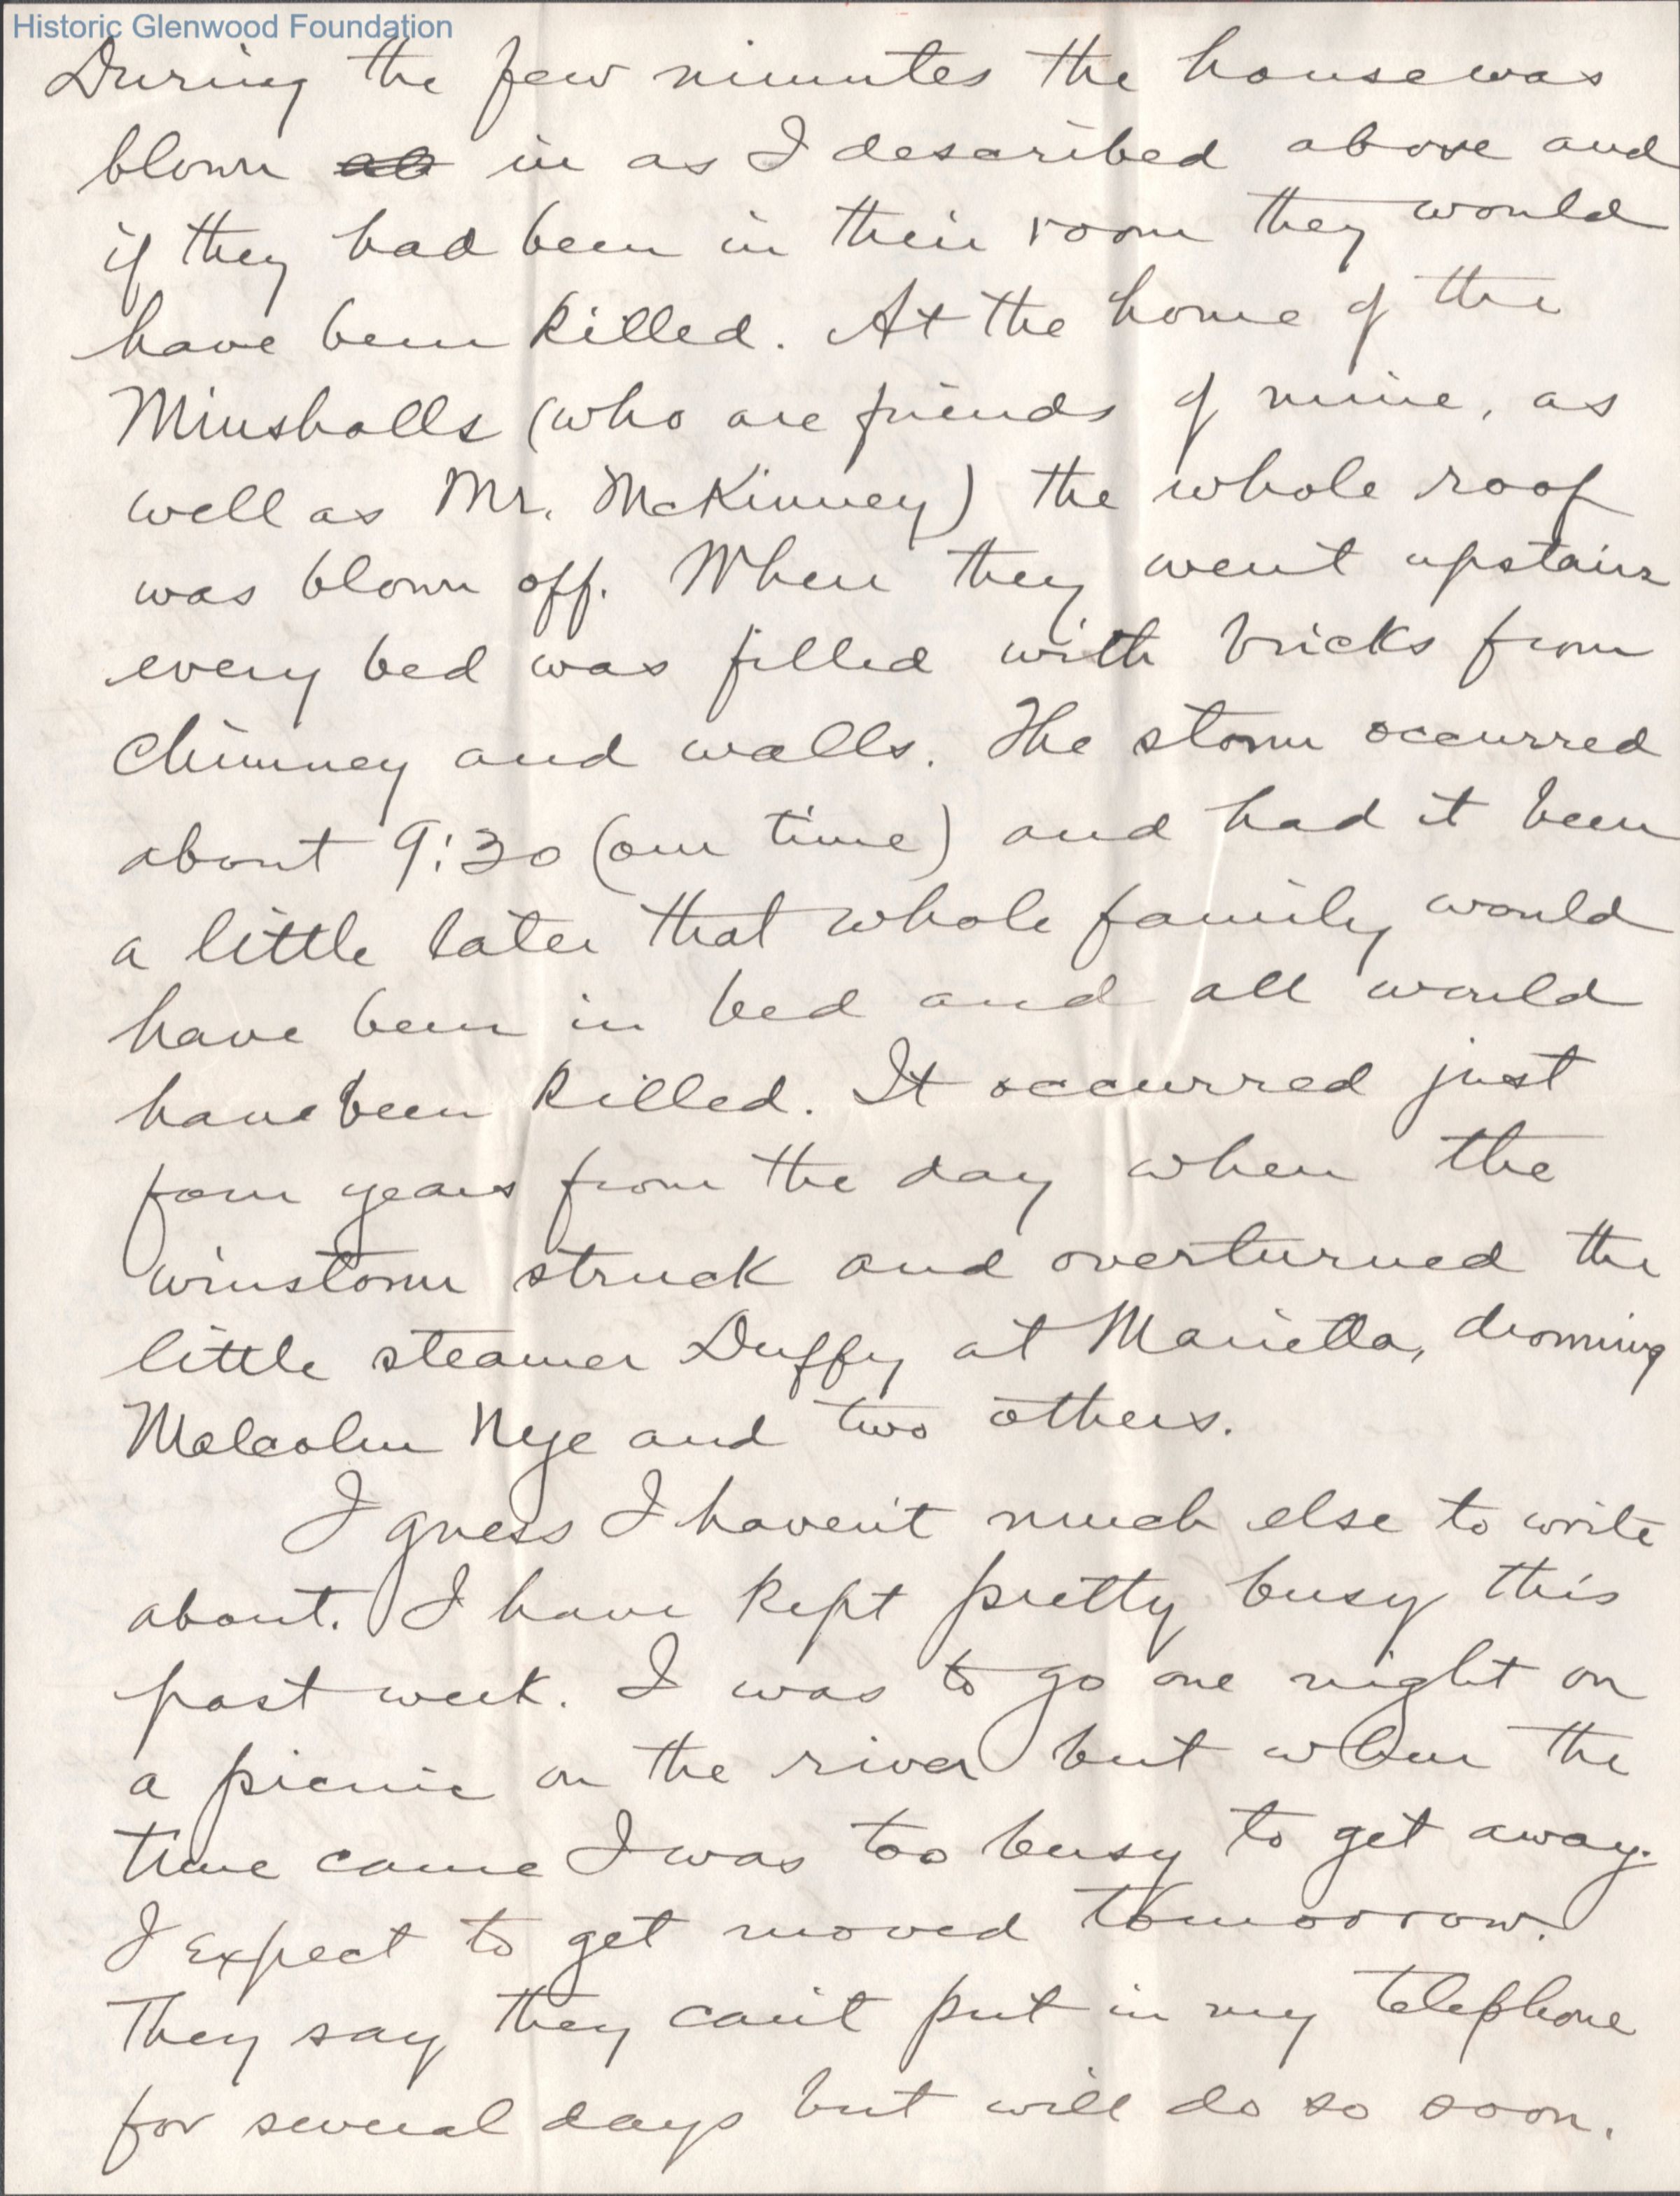 Historic Glenwood Foundation
During the few minutes the house was
blown in as I described above and
if they had been in their room they would
have been killed. At the home of the
Minshalls (who are friends of mine, as
well as Mr. McKinney) the whole roof
was blown off. When they went upstairs
every bed was filled with bricks from
chimney and walls. The storm occurred
about 9:30 (our time) and had it been
a little later that whole family would
have been in bed and all would
have been killed. It occurred just
four years from the day when the
winstorm struck and overturned the
little steamer Duffy at Marietta, drowning
Malcolm Nye and two others.
I guess I haven't much else to write
about. I have kept pretty busy this
past week. I was to go one night on
a picnic on the river but when the
time came I was too busy to get away.
I expect to get moved tomorrow.
They say they can't put in my telephone
for several days but will do so soon.